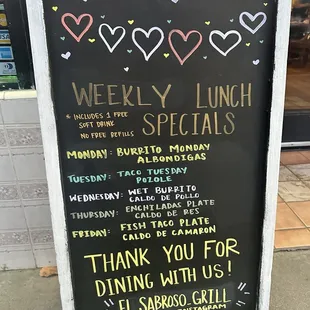 WEEKLY LUNCH
* INCLUDES 1 FREE
SOFT DRINK
NO FREE REFILLS
SPECIALS
MONDAY: BURRITO MONDAY
ALBONDIGAS
TUESDAY: TACO TUESDAY
POZOLE
WEDNESDAY: WET BURRITO
CALDO DE POLLO
THURSDAY: ENCHILADAS PLATE
CALDO DE RES
FRIDAY: FISH TACO PLATE
CALDO DE CAMARON
THANK YOU FOR
DINING WITH US!
"EL SABROSO.GRILL"
INSTAGRAM